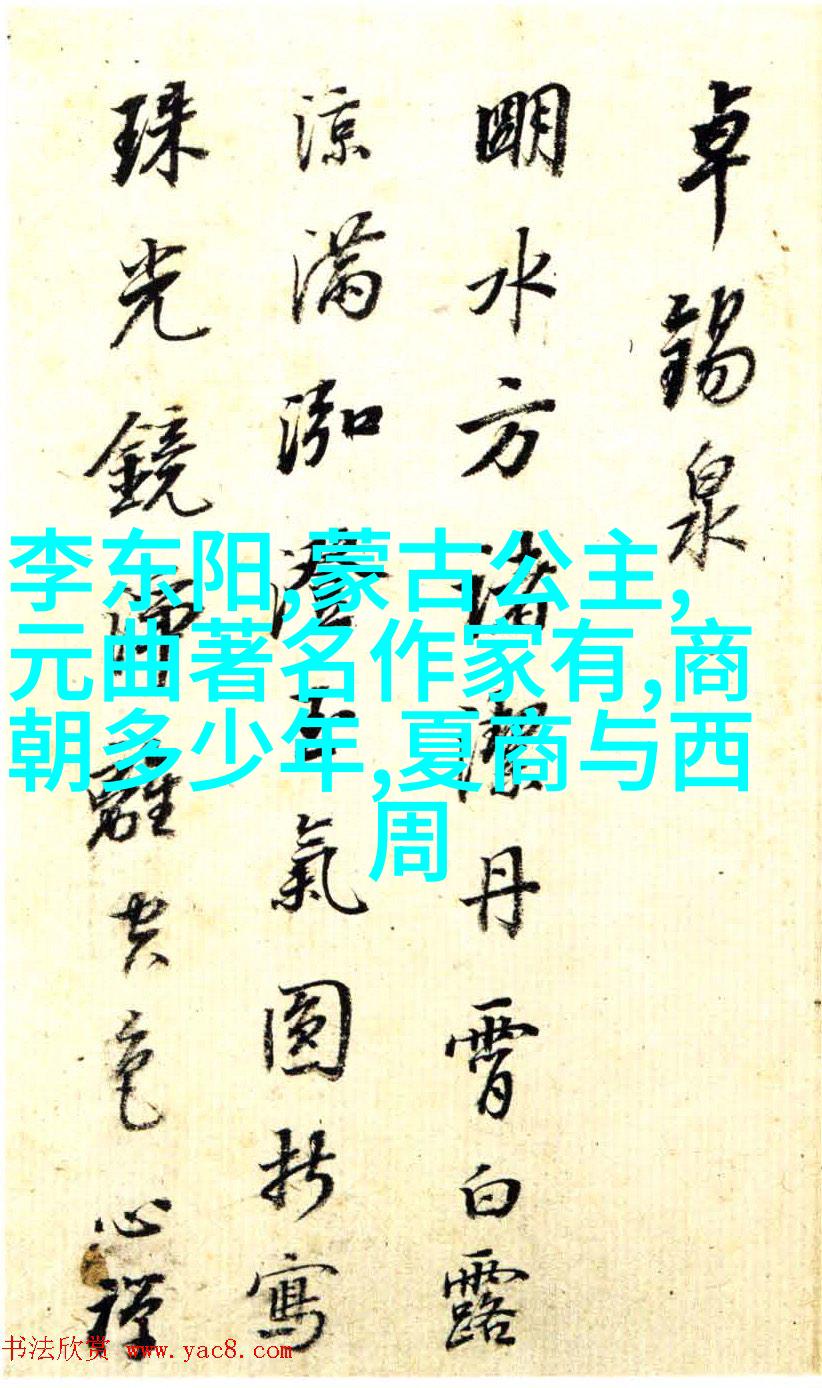 卓錫泉
明水方諸潔丹霄白露
涼滿泓澄一氣圓於寫
珠光鏡離空色心禪
李东阳,蒙古公主,
元曲著名作家有,商
朝多少年,夏商与西
周
书法欣赏 www.yac8.com